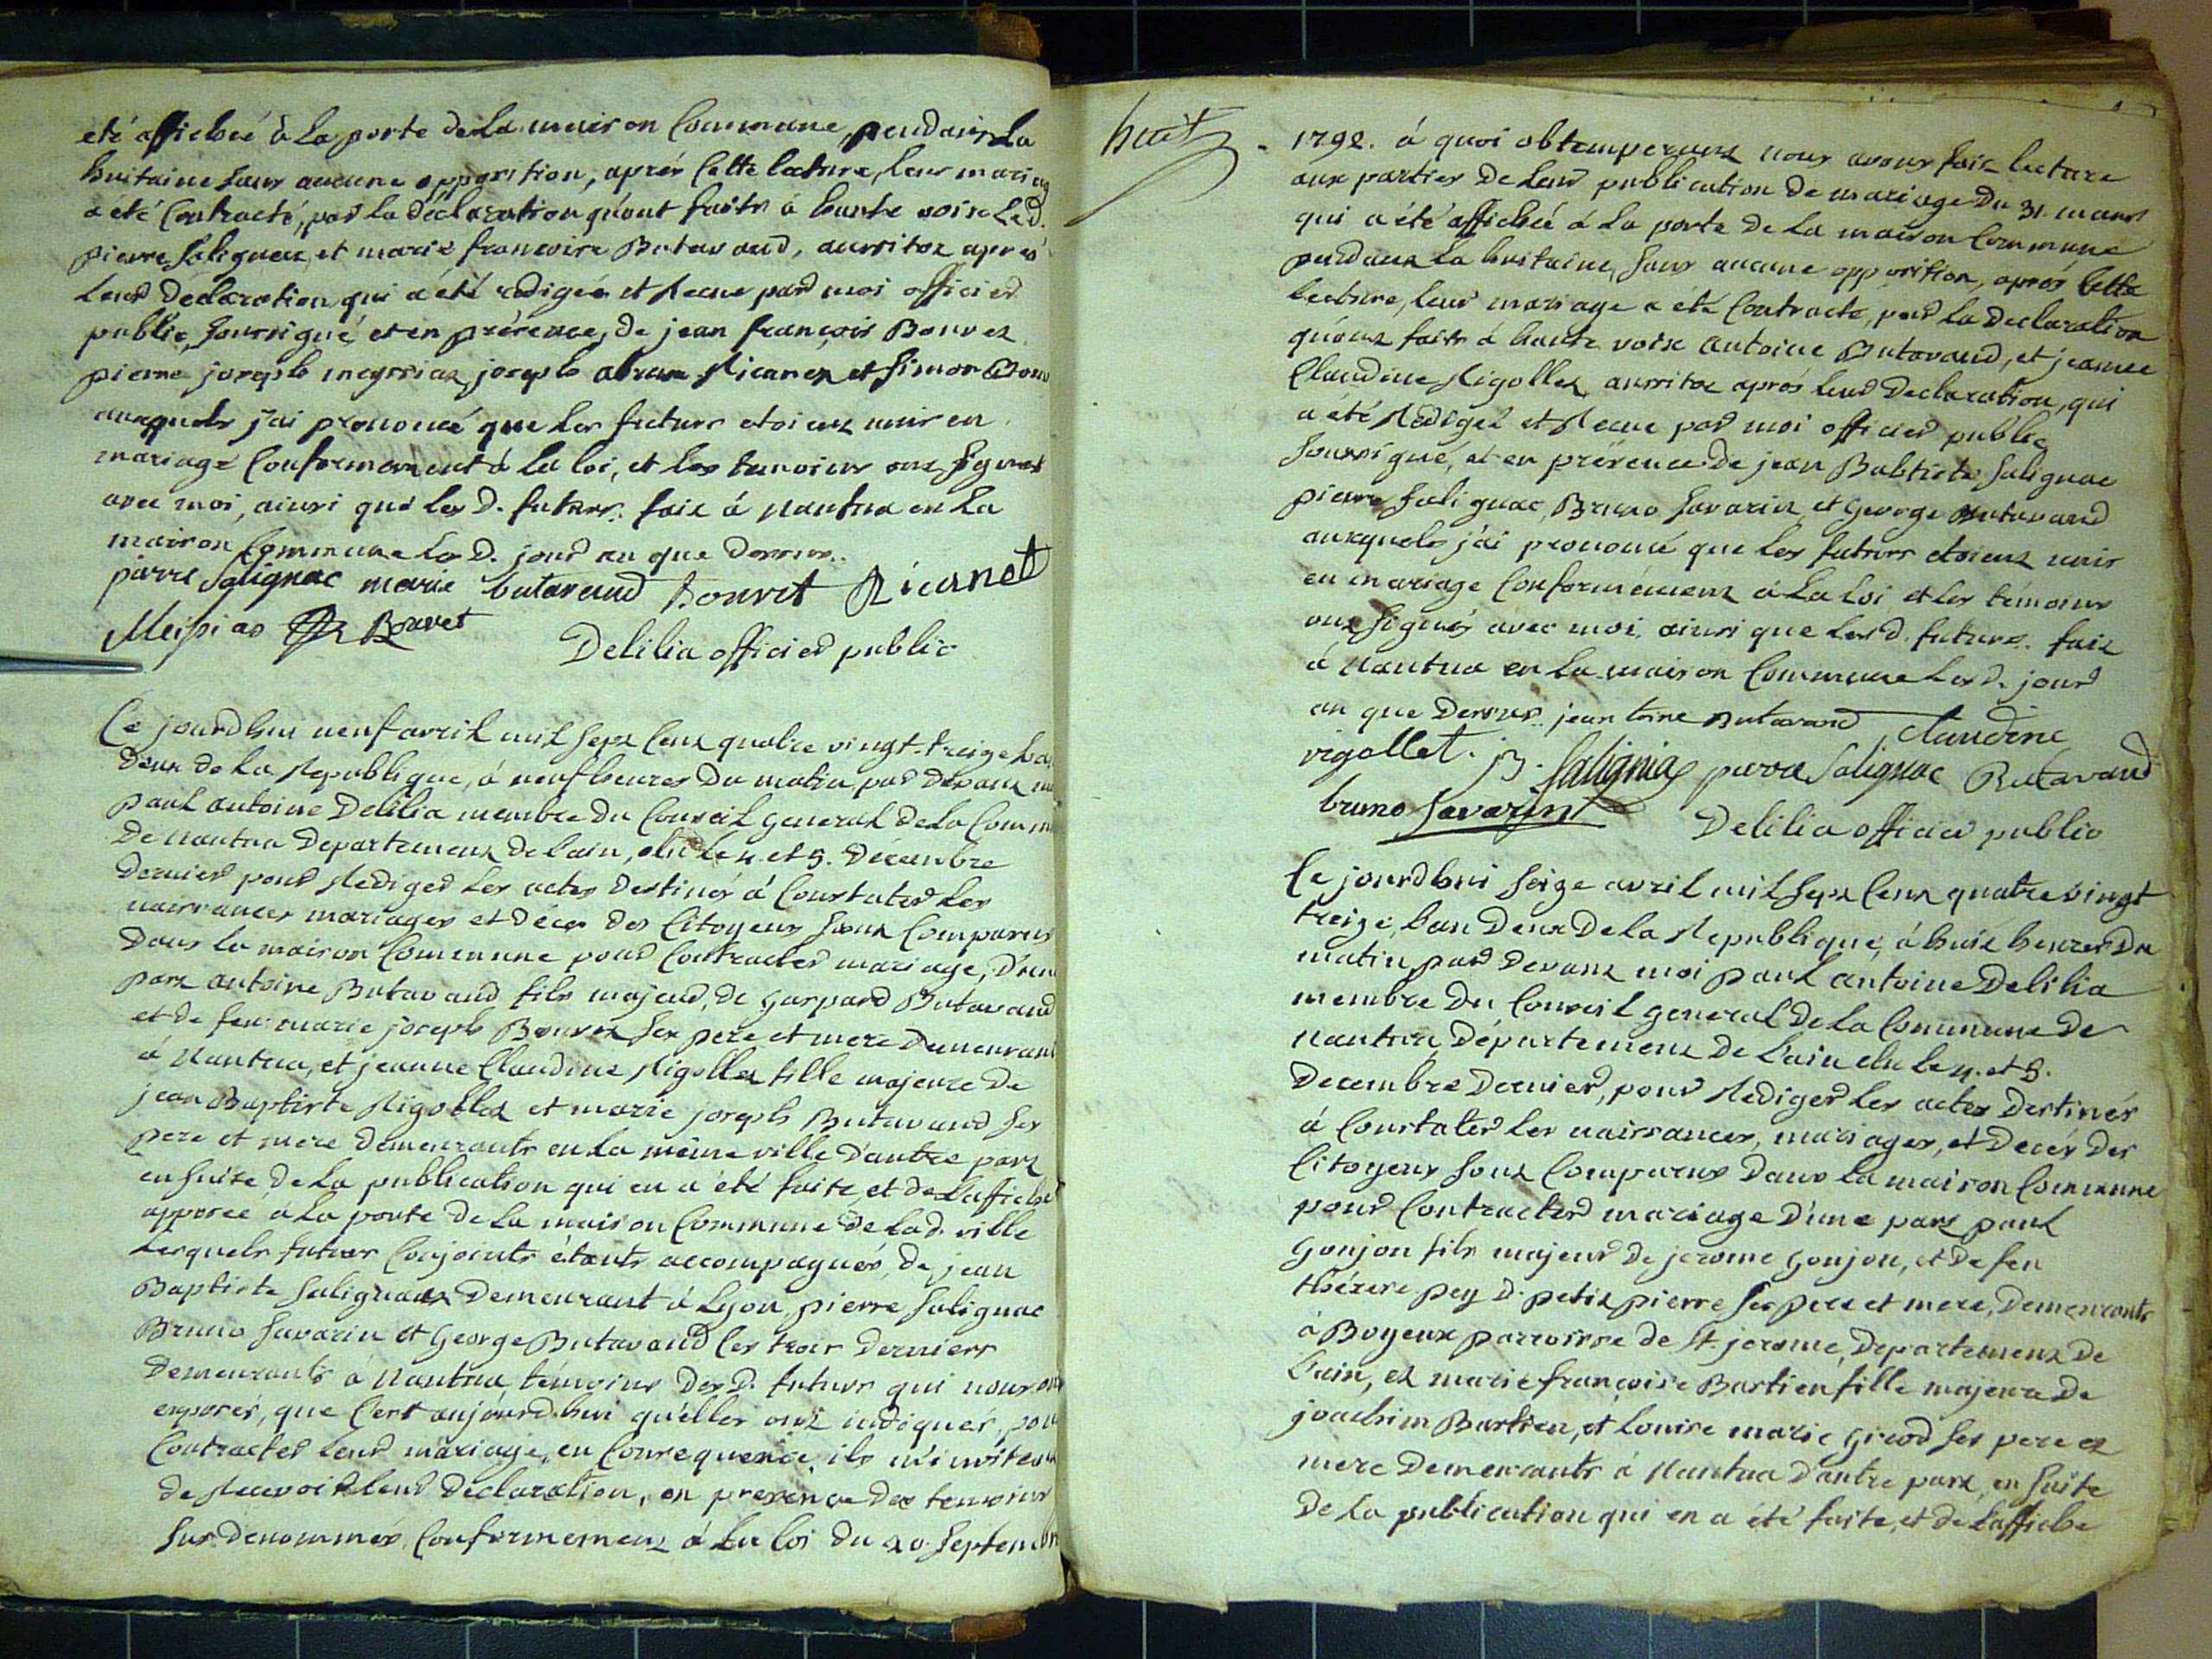 eté affichéé à la porte de la maison Commune, pendant la
huitaine sans aucune opposition, aprés Cette lecture, leur mariag
a été Contracté, par la déclaration qu'ont faits à haute voix led.
pierre Salignat, et marie francoise Butavand, aussitot aprés
leur déclaration qui a été redigée et Recue par moi officier
public, Soussigné, et en présence, de jean françois Bouvet
pierre joseph meyssiat, joseph Ricanet et Simon
auxquels j'ai prononcé que les futurs etoient unis en
mariage Conformement à la loi, et les temoins ont Signés
avec moi, ainsi que les d. futurs. fait à Nantua en la
maison Commune les d. jour an que dessus.
pierre Salignac marie butavand Bouvet Ricanet
Meisias Bouvet
Delilia officier public
Ce jourdhui neuf avril mil Sept Cent quatre vingt-treize L'an
deux de la Republique, à neuf heures du matin, par devant m
paul antoine Delilia membre du Conseil general de la Comm
de nantua Departement de lain, élu le 4. et 5. Décembre
dernier pour Rediger les actes destinés à Constater les
naissances mariages et décés des Citoyens Sont Comparus
dans la maison Commune pour Contracter mariage, d'une
part antoine Butavand fils majeur, de gaspard Butavand
et de feu marie joseph Bouvet Ses pere et mere demeurant
à Nantua, et jeanne Claudine Rigollet fille majeure de
jean Baptiste Rigollet et marie joseph Butavand Ses
pere et mere demeurants en la même ville d'autre part
en Suite de la publication qui en a été faite, et de l'affiche
apposée à la porte de la maison Commune de lad. ville
Lesquels futurs Conjoints étants accompagnés, de jean
Baptiste Salignat demeurant à Lyon, pierre Salignac
Bruno Savarin et George Butavand les trois derniers
demeurants à Nantua, témoins des d. futurs qui nous ont
exposés, que C'est aujourd'hui qu'elles ont indiqués, pour
Contracter leur mariage, en Consequence, ils m'invitent
de Recevoir leur déclaration, en presence des temoins
Sus denommés, Conformement à la loi du 20. Septembre
huit
1792. à quoi obtemperant nous avons fait lecture
aux parties de leur publication de mariage du 31. mars
qui a été affichéé à la porte de la maison Commune
pendant la huitaine, Sans aucune opposition, aprés Cette
lecture, leur mariage a été Contracté, par la declaration
qu'ont faits à haute voix antoine Butavand, et jeanne
Claudine Rigollet, aussitot aprés leur declaration, qui
a été Redigée et Recue par moi officier public
Soussigné, et en présence de jean Babtiste Salignac
pierre Salignac, Bruno Savarin et George Butavand
auxquels j'ai prononcé que les futurs etoient unis
en mariage Conformément à la loi et les témoins
ont Signés avec moi, ainsi que les d. futurs. fait
à Nantua en la maison Commune les d. jour
an que dessus. jean toine Butavand Claudine
rigollet. j B. Salignia pierre Salignac Butavand
bruno Savarin
Delilia officier public
Ce jourdhui Seize avril mil Sept Cent quatre vingt
treize, l'an deux de la Republique, à huit heures du
matin, par devant moi paul antoine Delilia
membre du Conseil general de la Commune de
nantua, Département de l'ain elu le 4. et 5.
Decembre dernier, pour Rediger les actes destinés
à Constater les naissances, mariages, et decés des
Citoyens Sont Comparus dans la maison Commune
pour Contracter mariage d'une part paul
Goujon fils majeur de jerome goujon, et de feu
thérese pey d. petit pierre Ses pere et mere, demeurants
à Boyeux parroisse de St. jerome, departement de
l'ain, et marie françoise Bastien fille majeure de
joachim Bastien, et Louise marie girod Ses pere et
mere demeurants à Nantua d'autre part, en Suite
de la publication qui en a été faite, et de l'affiche